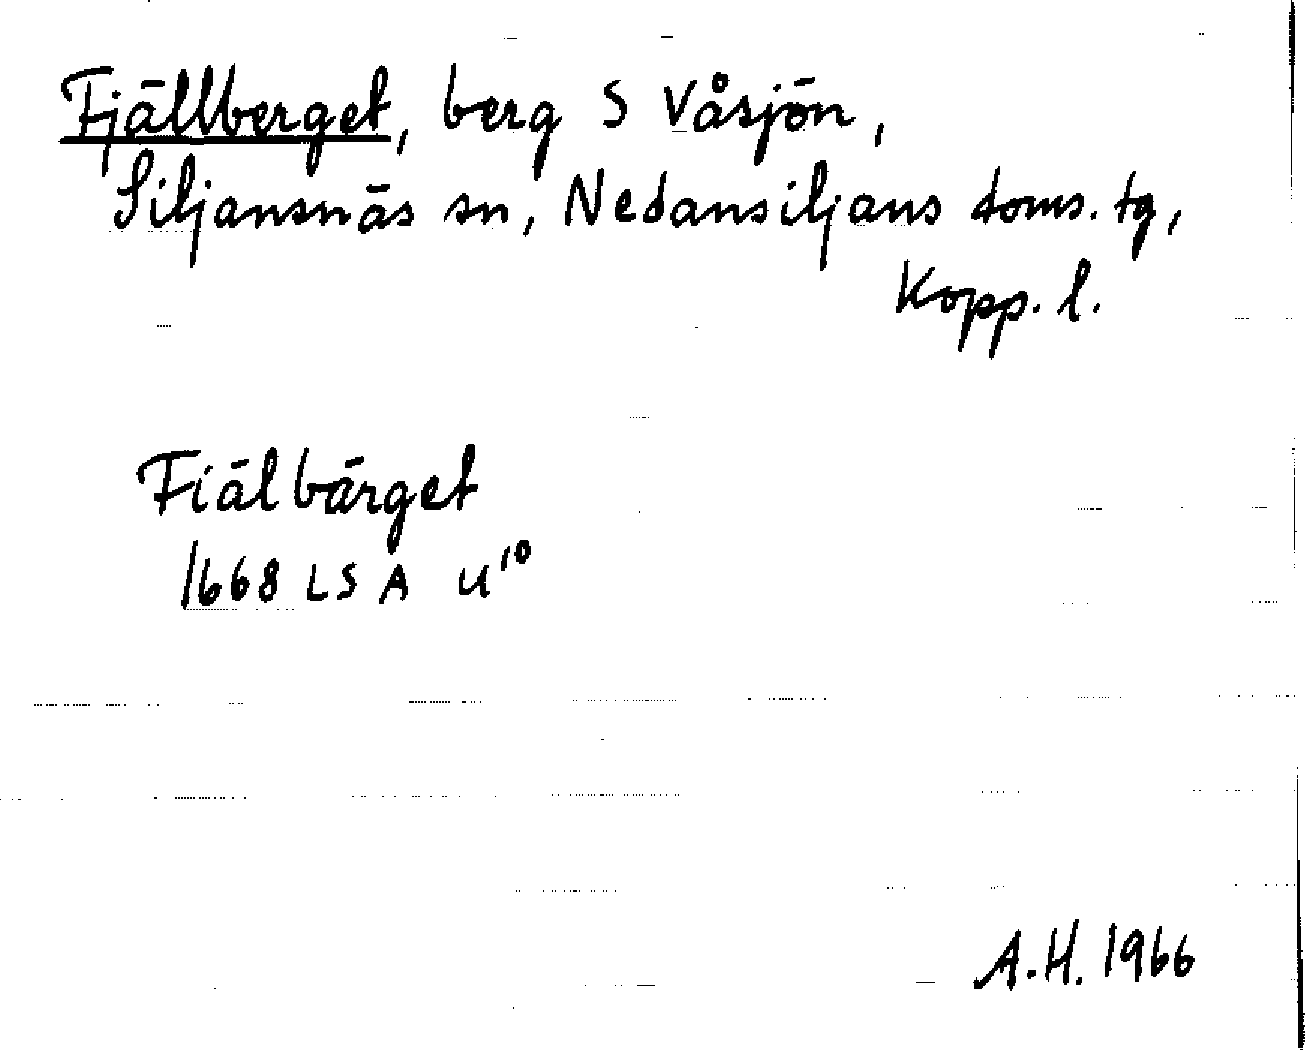 Fjällberget, berg S Våsjön,
Siljansnäs sn, Nedansiljans doms. tg,
Kopp. l.
Fiälbärget
1668 LSA U¹⁰
A.H. 1966